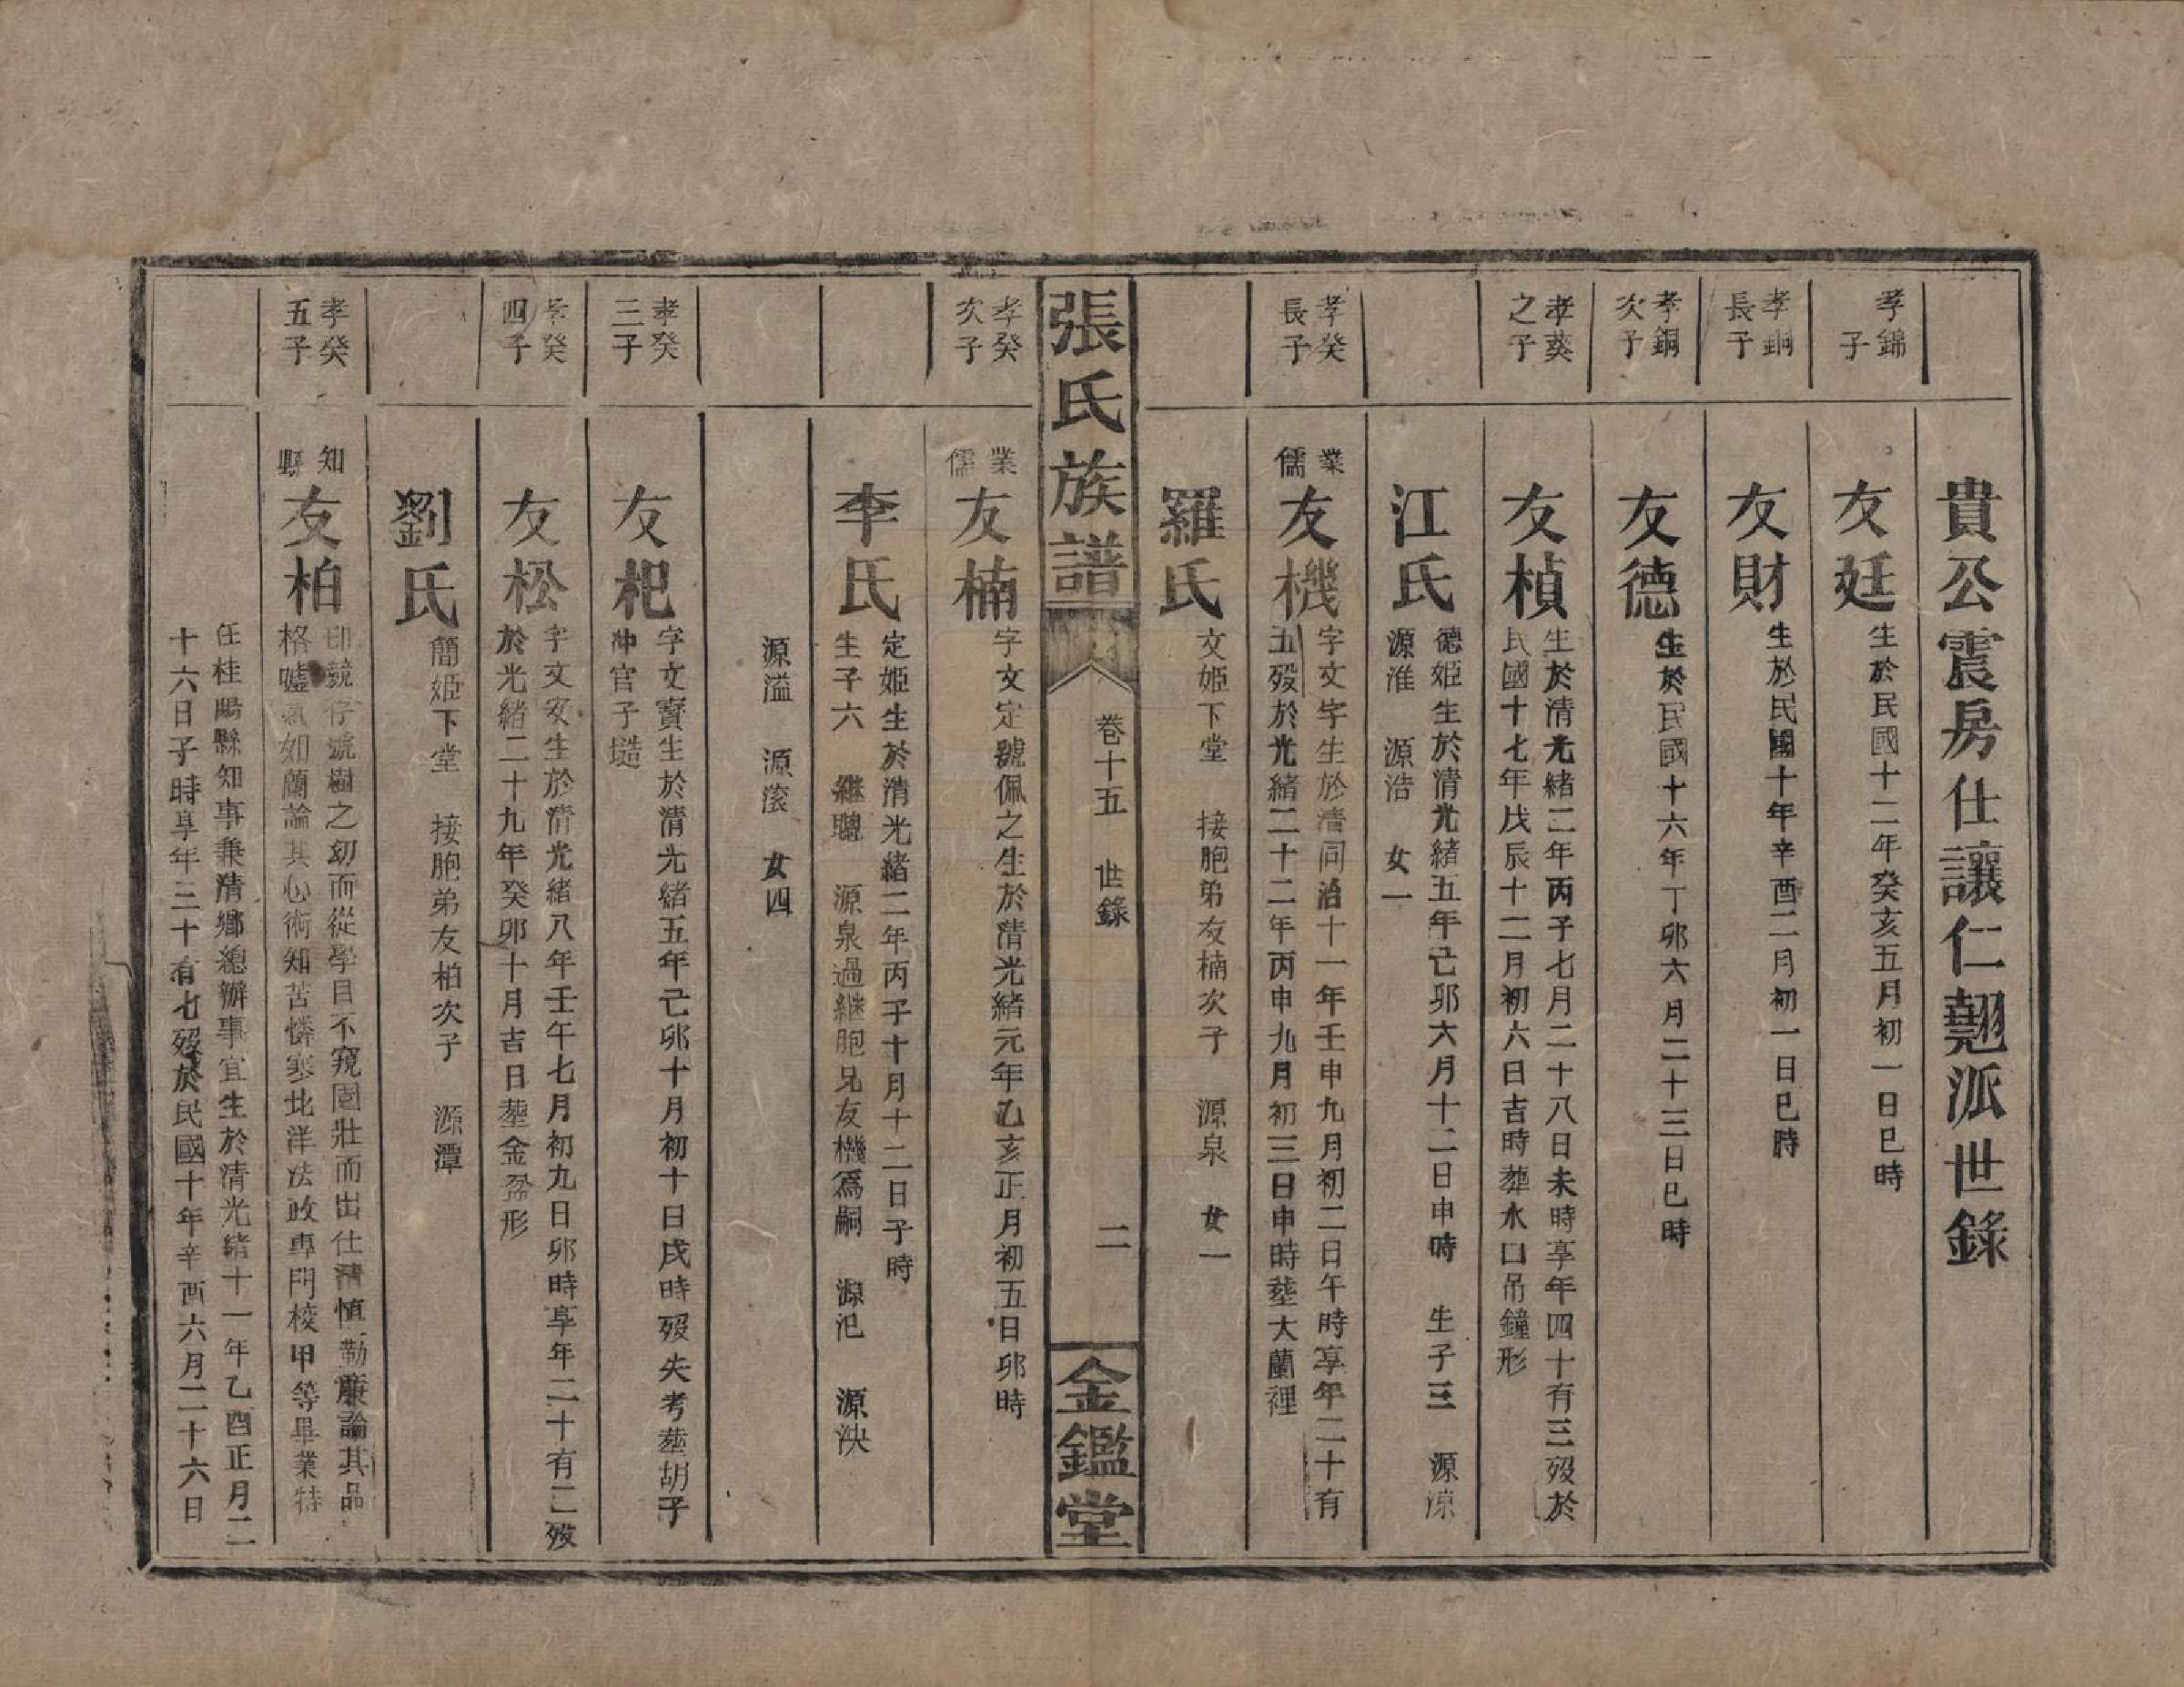 貴公震房仕讓仁翹派世錄
孝錦
子
友廷
生於民國十二年癸亥五月初一日巳時
孝銅
長子
友財
生於民國十年辛酉二月初一日巳時
孝銅
次子
友德
生於民國十六年丁卯六月二十三日巳時
孝葵
之子
友楨
生於清光緒二年丙子七月二十八日未時享年四十有三歿於
民國十七年戊辰十二月初六日吉時葬水口吊鐘形
江氏
德姬生於清光緒五年己卯六月十二日申時 生子三 源涼
源淮 源浩 女一
孝癸
長子
業
儒
友機
字文宇生於清同治十一年壬申九月初二日午時享年二十有
五歿於光緒二十二年丙申九月初三日申時塟大蘭裡
羅氏
文姬下堂 接胞弟友楠次子 源泉 女一
張氏族譜
卷十五 世錄
二
金鑑堂
孝癸
次子
業
儒
友楠
字文定號佩之生於清光緒元年乙亥正月初五日卯時
李氏
定姬生於清光緒二年丙子十月十二日子時
生子六 繼聰 源泉過継胞兄友機爲嗣 源汜 源泱
源溢 源滾 女四
孝癸
三子
友杷
字文寳生於清光緒五年己卯十月初十日戌時歿失考塟胡子
冲官子塏
孝癸
四子
友松
字文安生於清光緒八年壬午七月初九日卯時享年二十有二歿
於光緒二十九年癸卯十月吉日塟金盆形
劉氏
簡姬下堂 接胞弟友柏次子 源潭
孝癸
五子
知
縣
友柏
印競存號樹之幼而從學目不窺園壯而出仕清慎勤廉論其品
格噓氣如蘭論其心術知苦憐寒北洋法政專門校甲等畢業特
任桂陽縣知事兼清鄉總辦事宜生於清光緒十一年乙酉正月二
十六日子時享年三十有七歿於民國十年辛酉六月二十六日